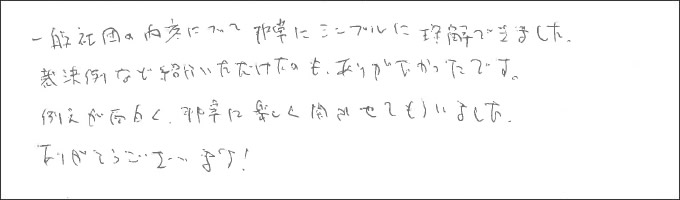 一般社団の内容について非常にシンプルに理解できました。
裁決例など紹介いただけたのも、ありがたかったです。
例えが面白く、非常に楽しく聞かせてもらいました。
ありがとうございます!